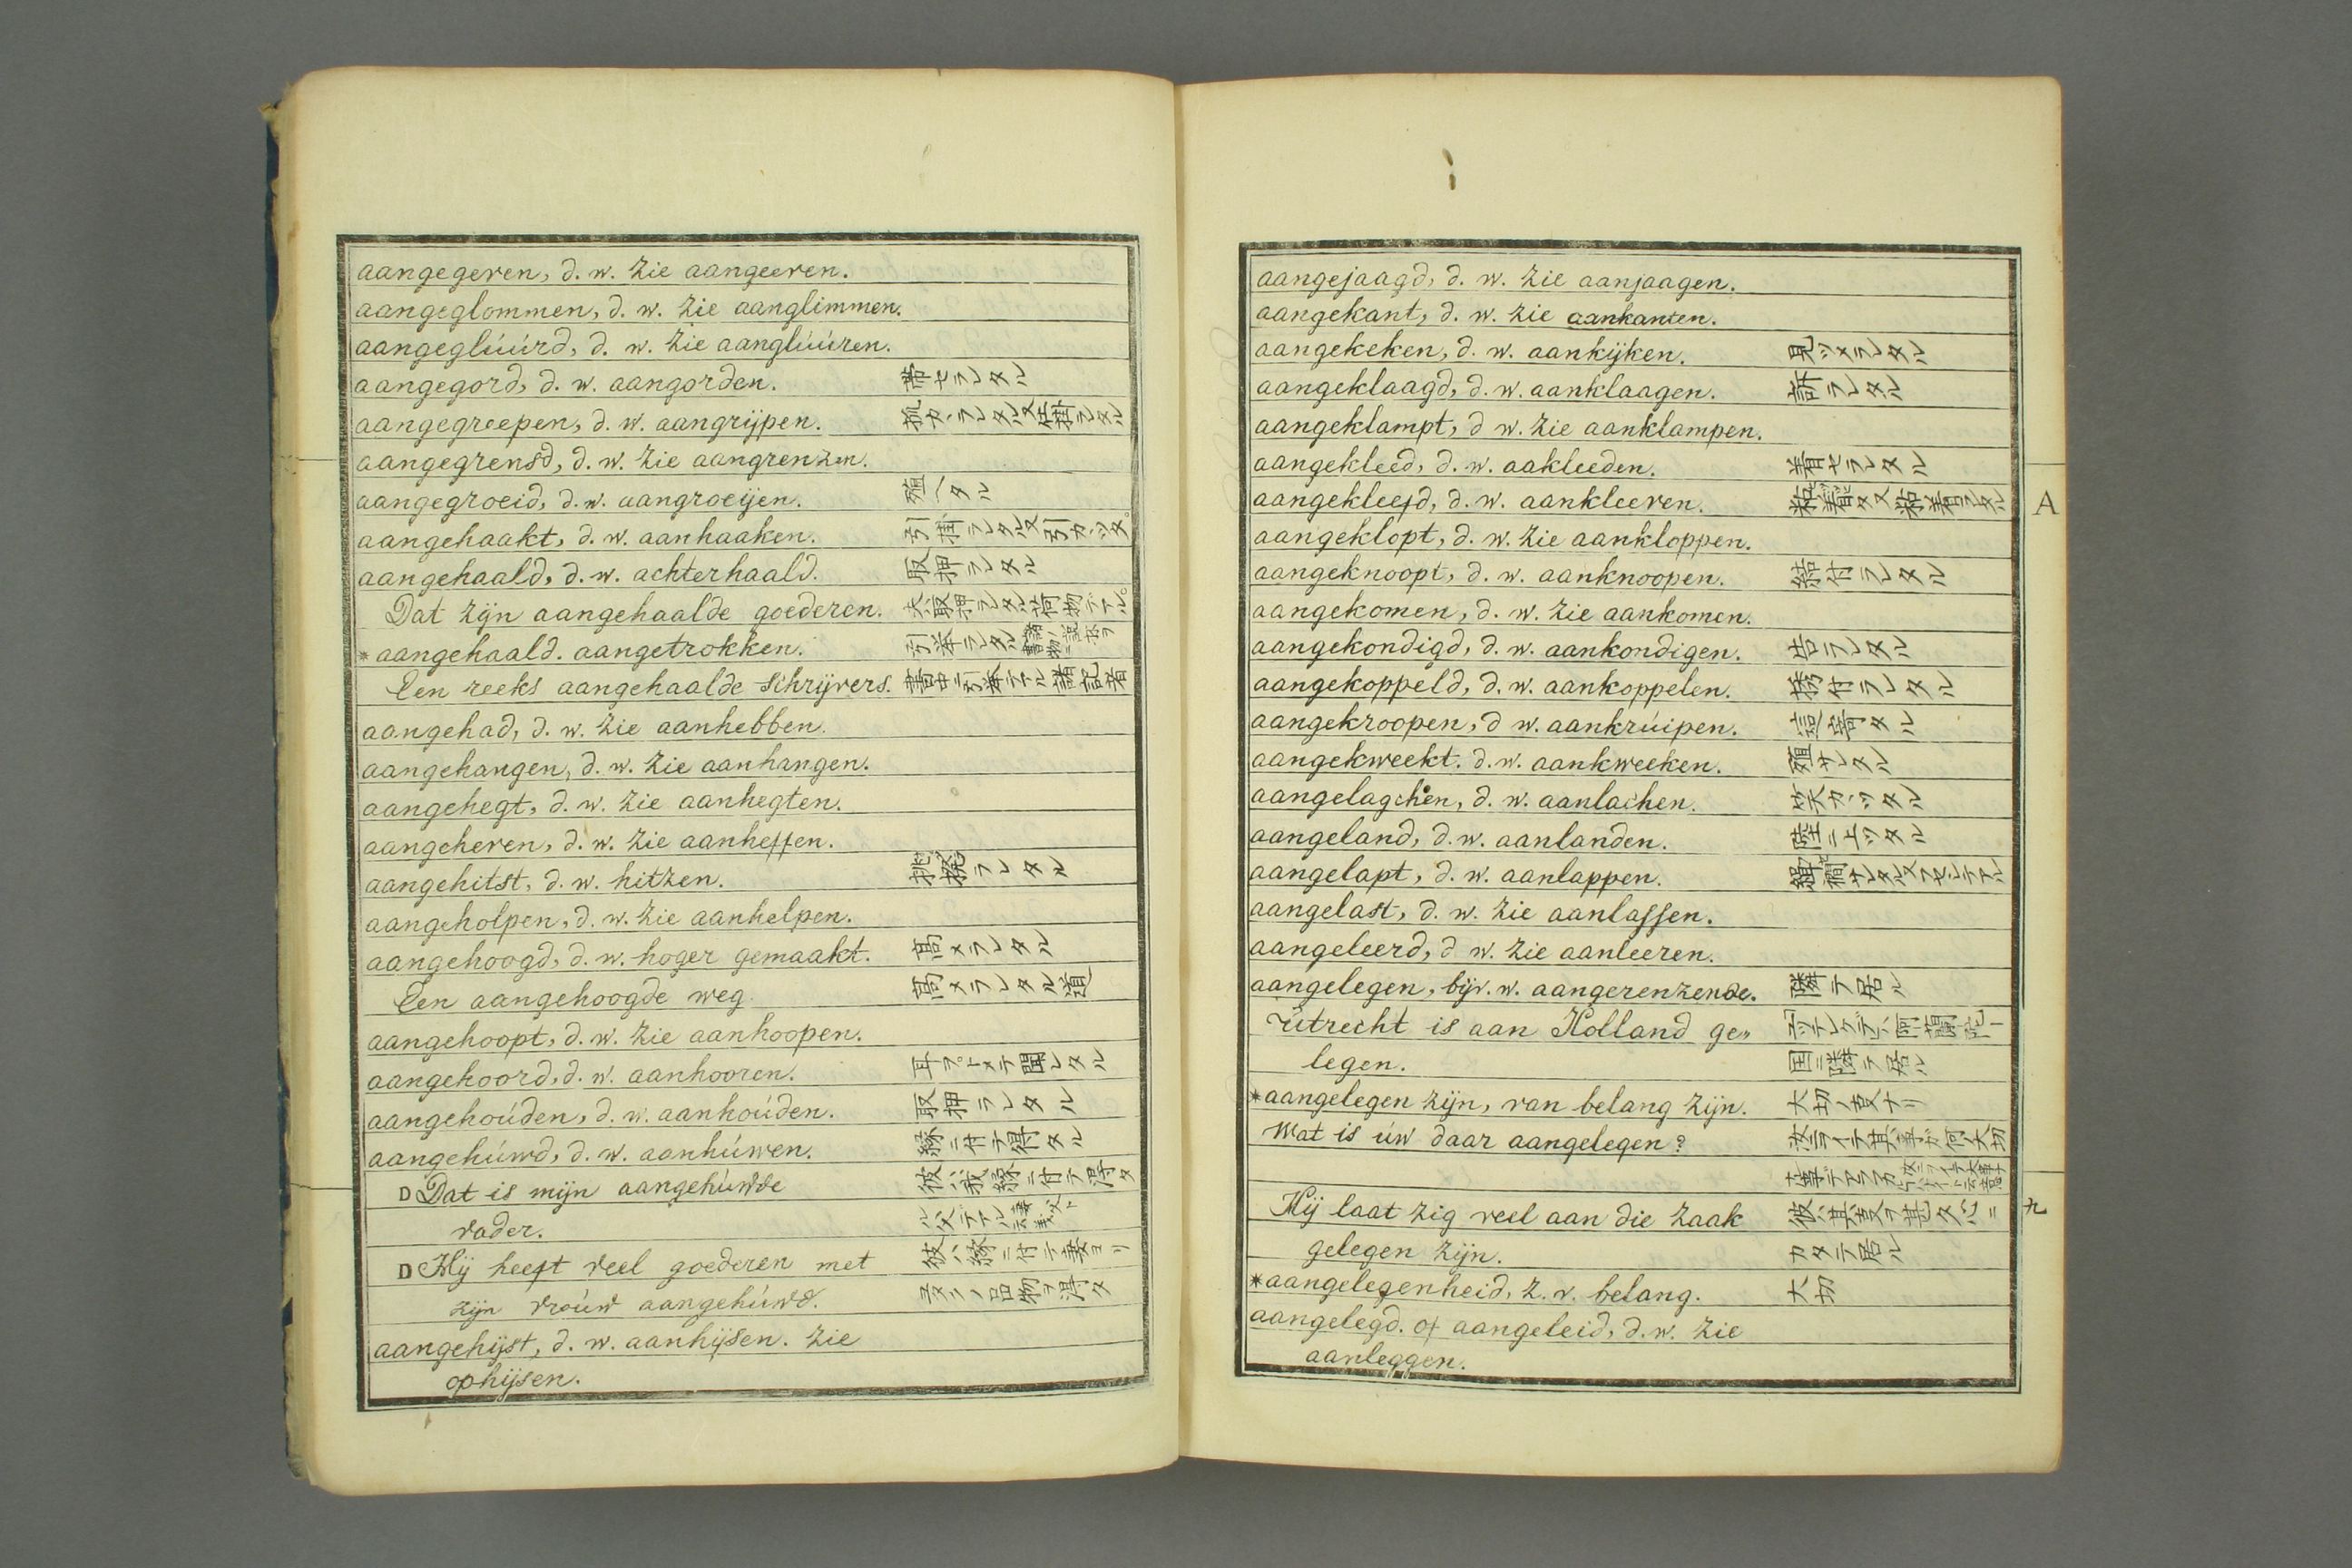 aangegeven, d. w. Zie aangeeven.
aangeglommen, d. w. Zie aanglimmen.
aangeglúúrd, d. w. Zie aanglúúren.
aangegord, d. w. aangorden. 帯セラレタル
aangegreepen, d. w. aangrijpen.
aangegrensd, d. w. Zie aangrenzen.
aangegroeid, d. w. aangroeijen. 殖ヘタル
aangehaakt, d. w. aanhaaken.
aangehaald, d. w. achterhaald. 取押ラレタル
Dat zijn aangehaalde goederen. 夫ハ取押ラレタル荷物デアル。
*aangehaald. aangetrokken. 引挙ラレタル
Een reeks aangehaalde Schrijvers. 書中ニ引挙テアル諸記者
aangehad, d. w. Zie aanhebben.
aangehangen, d. w. Zie aanhangen.
aangehegt, d. w. Zie aanhegten.
aangeheven, d. w. Zie aanheffen.
aangehitst, d. w. hitzen. 挑撥ラレタル
aangeholpen, d. w. Zie aanhelpen.
aangehoogd, d. w. hoger gemaakt. 高メラレタル
Een aangehoogde weg. 高メラレタル道
aangehoopt, d. w. Zie aanhoopen.
aangehoord, d. w. aanhooren. 耳ヲトメテ聞レタル
aangehoúden, d. w. aanhoúden. 取押ラレタル
aangehúwd, d. w. aanhúwen. 縁ニ付テ得タル
D Dat is mijn aangehúwde 彼ハ我縁ニ付テ得タ
vader. ル父デアル
D Hij heeft veel goederen met 彼ハ縁ニ付テ妻ヨリ
zijn vroúw aangehúwd. 品物ヲ得タ
aangehijst, d. w. aanhijsen. Zie
ophijsen.
aangejaagd, d. w. Zie aanjaagen.
aangekant, d. w. Zie aankanten.
aangekeken, d. w. aankijken. 見ツメラレタル
aangeklaagd, d. w. aanklaagen. 訴ラレタル
aangeklampt, d w. Zie aanklampen.
aangekleed, d. w. aakleeden. 着セラレタル
aangekleefd, d. w. aankleeven.
A
aangeklopt, d. w. Zie aankloppen.
aangeknoopt, d. w. aanknoopen. 結付ラレタル
aangekomen, d. w. Zie aankomen.
aangekondigd, d. w. aankondigen. 告ラレタル
aangekoppeld, d. w. aankoppelen. 付ラレタル
aangekroopen, d w. aankrúipen. 這寄タル
aangekweekt. d. w. aankweeken. 殖サレタル
aangelagchen, d. w. aanlachen. 笑カヽツタル
aangeland, d. w. aanlanden. 陸ニ上ツタル
aangelapt, d. w. aanlappen.
aangelast, d. w. Zie aanlassen.
aangeleerd, d w. Zie aanleeren.
aangelegen, bijv. w. aangerenzende. 隣テ居ル
Utrecht is aan Holland ge„
legen. 国ニ隣テ居ル
*aangelegen zijn, van belang zijn. 大切ノ叓ナリ
Wat is úw daar aangelegen? 汝ニヲイテ其事ガ何大切
Hij laat zig veel aan die zaak
gelegen zijn. カタテ居ル
*aangelegenheid, z. v. belang. 大切
aangelegd. of aangeleid, d. w. Zie
aanleggen.
九